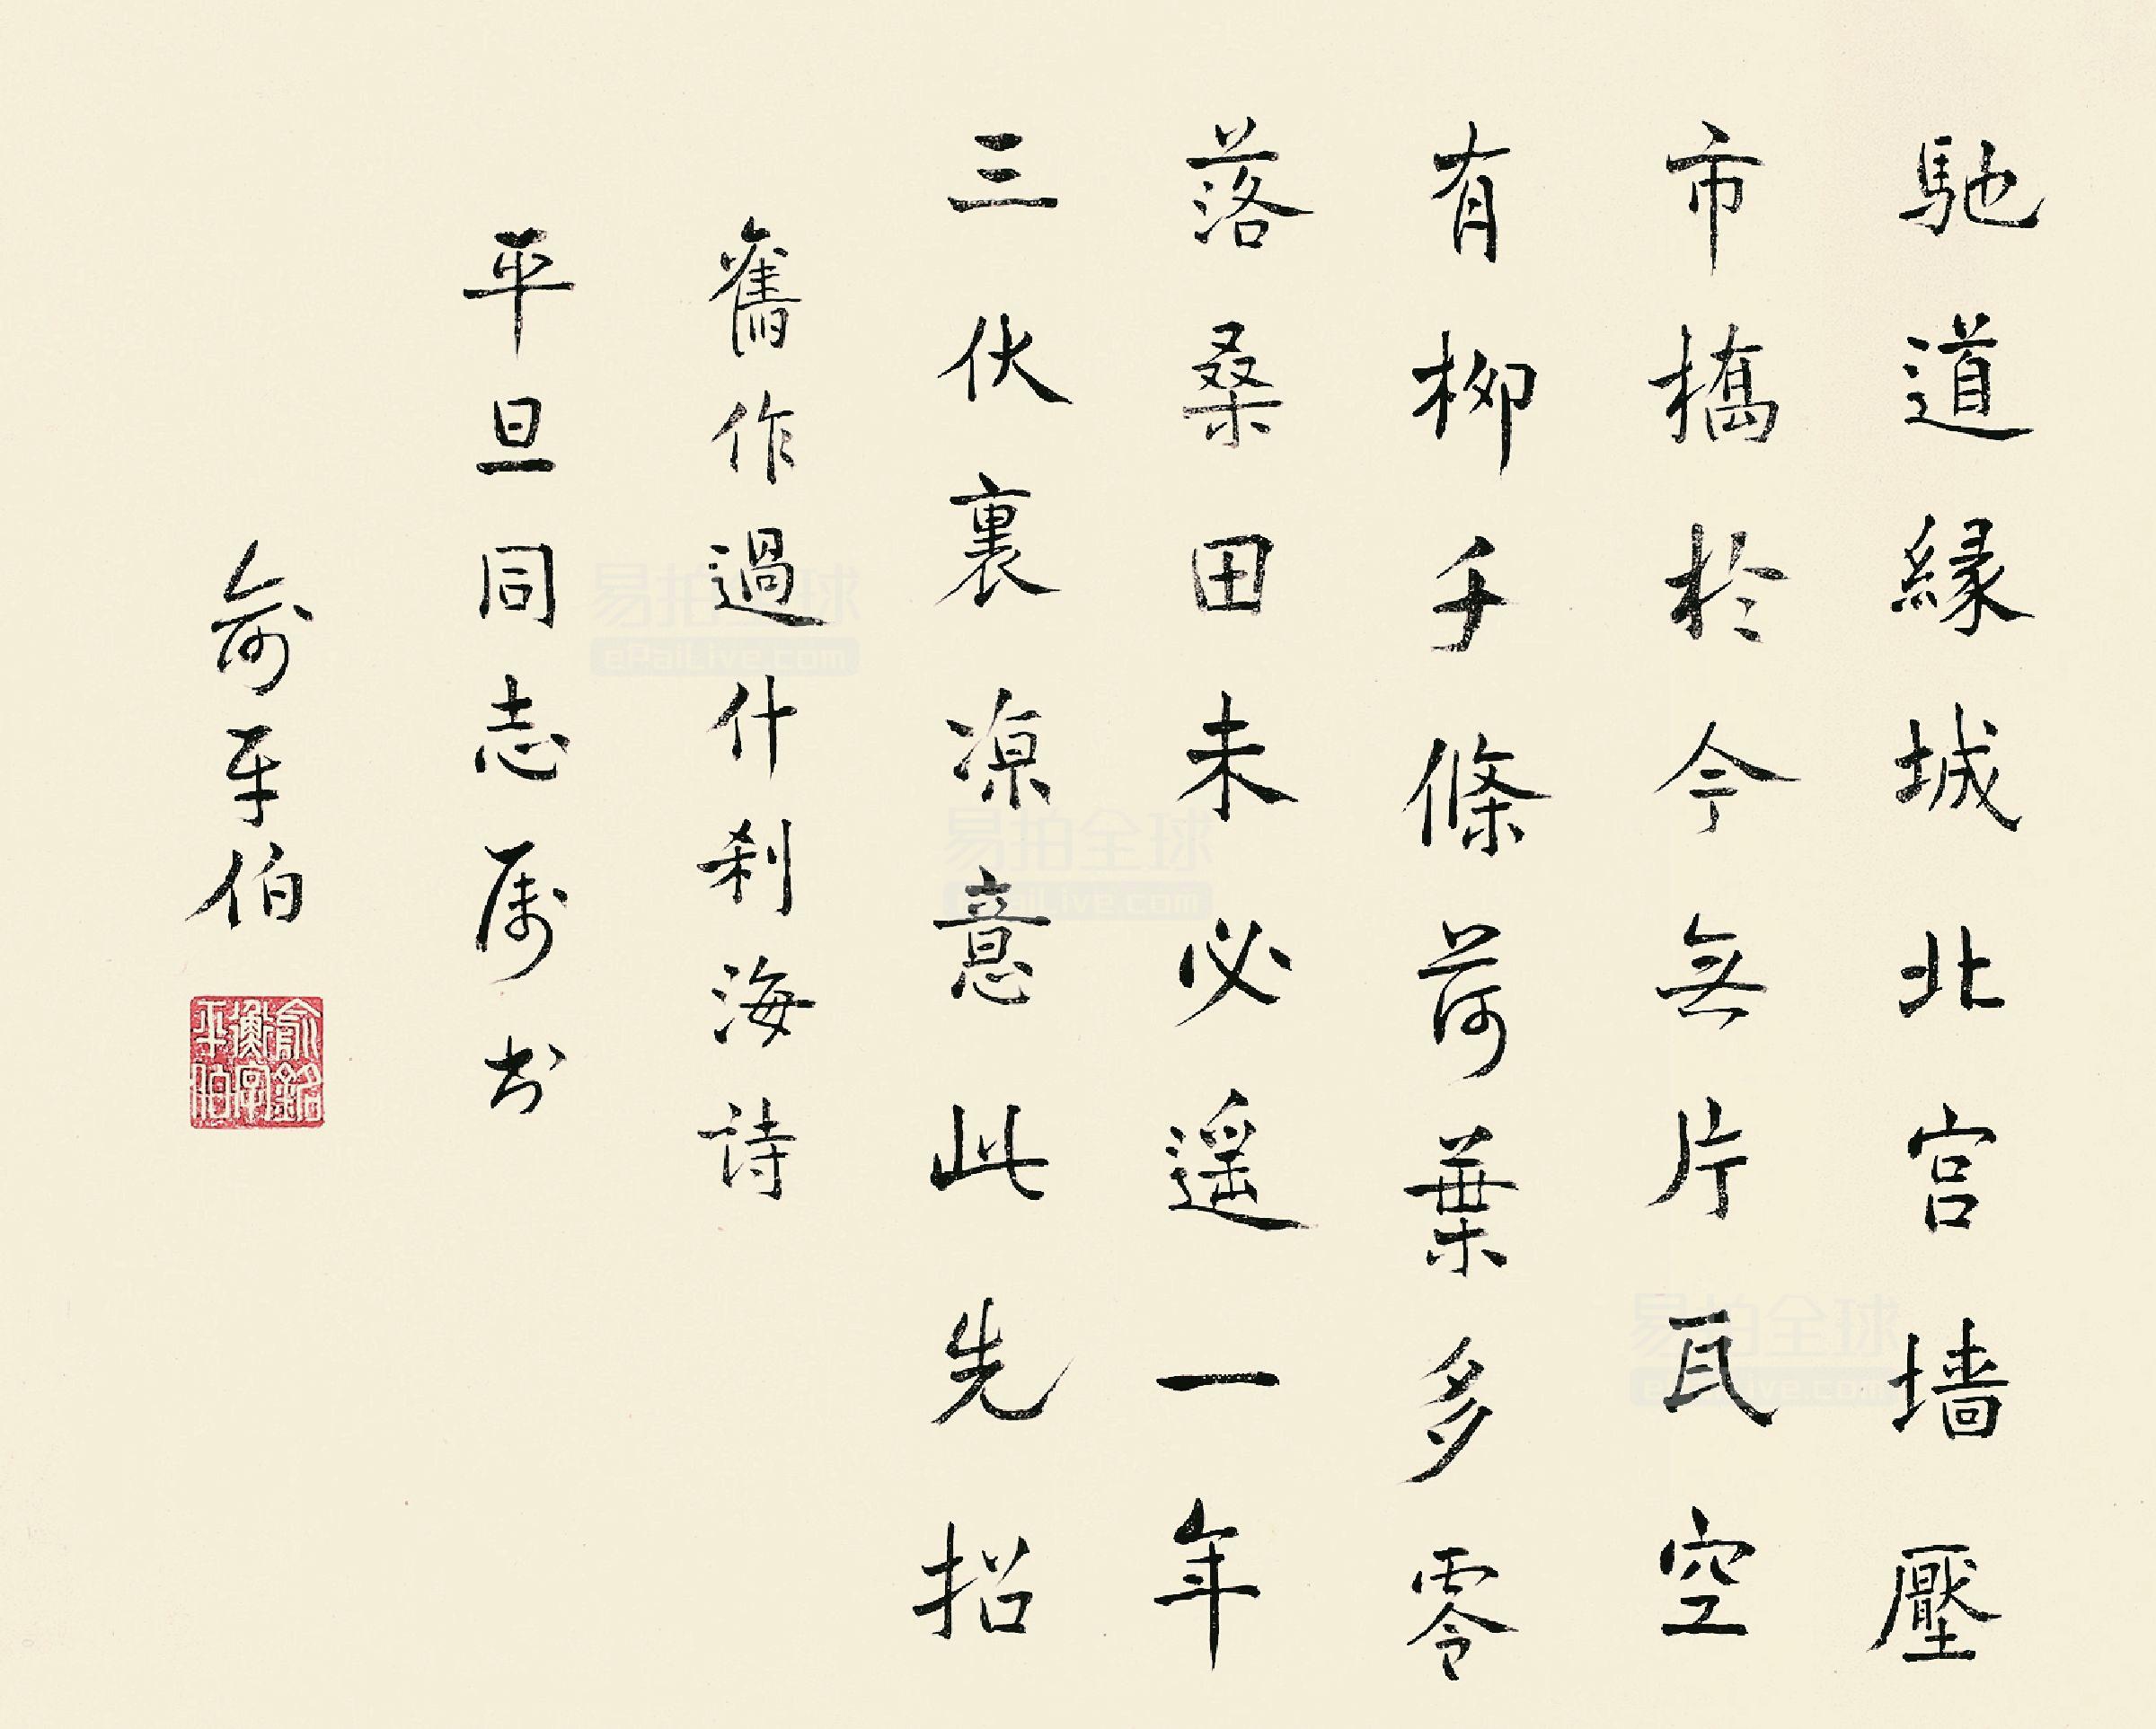 馳道緣城北宫墙壓
市橋於今無片瓦空
有柳千條荷葉多零
落桑田未必遥一年
三伏裏凉意此先招
舊作過什刹海詩
平旦同志属书
俞平伯
俞銘衡字平伯
易拍全球
ePaiLive.com
易拍全球
ePaiLive.com
易拍全球
ePaiLive.com